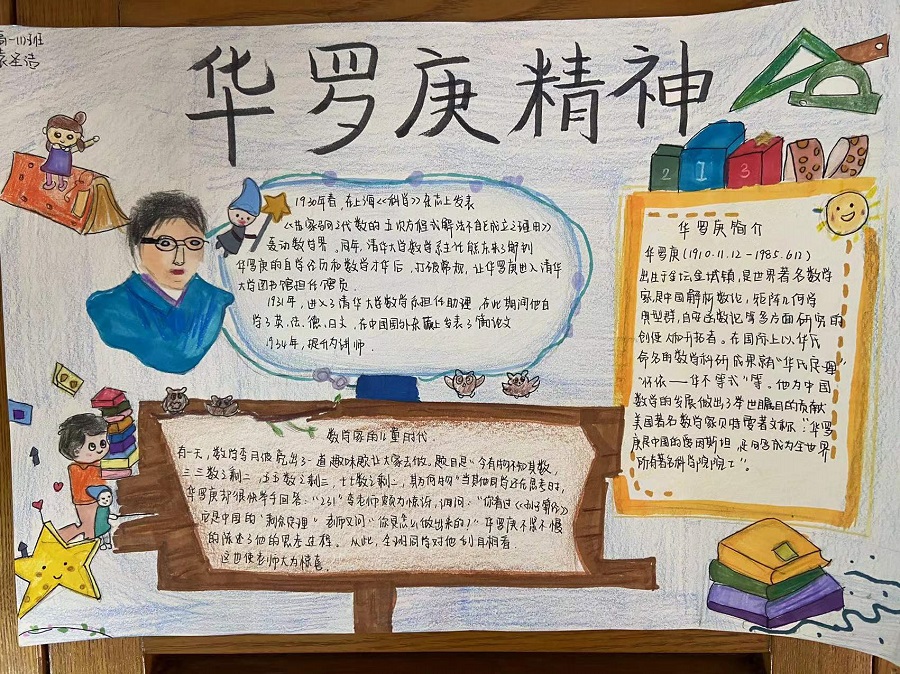 高一(1)班
袁圣洁
华罗庚精神
1930年春,在上海《科学》杂志上发表
《苏家驹之代数的五次方程式解法不能成立之理由》
轰动数学界。同年,清华大学数学系主任熊庆来了解到
华罗庚的自学经历和数学才华后,打破常规,让华罗庚进入清华
大学图书馆担任馆员.
1931年,进入了清华大学数学系担任助理,在此期间他自
学了英、法、德、日文,在国内外杂志上发表了3篇论文
1934年,提升为讲师.
华罗庚简介
华罗庚(1910.11.12-1985.6.12)
出生于金坛金城镇,是世界著名数学
家,是中国解析数论,矩阵几何学
典型群,自安函数论等多方面研究的
创使人和开拓者。在国际上以华氏
命名的数学科研成果就有“华氏定理”
“怀依——华不等式”等。他为中国
数学的发展做出了举世瞩目的贡献
美国著名数学家贝特曼著文称:“华罗
庚是中国的爱因斯坦,足够成为全世界
所有著名科学院院士”。
数学家的儿童时代
有一天,数学老师 出了一道趣味题让大家去做。题目是“今有物不知其数,
三三数之剩二,五五数之剩三,七七数之剩二,其为何物”当其他同学还在思考时,
华罗庚却很快举手回答:“23!”老师颇为惊讶,问:“你看过《孙子算经》
它是中国的“剩余定理”老师又问“你是怎么做出来的?”华罗庚不紧不慢
的陈述了他的思考过程。从此,全班同学对他刮目相看
这也使老师大为惊喜.
2
1
3